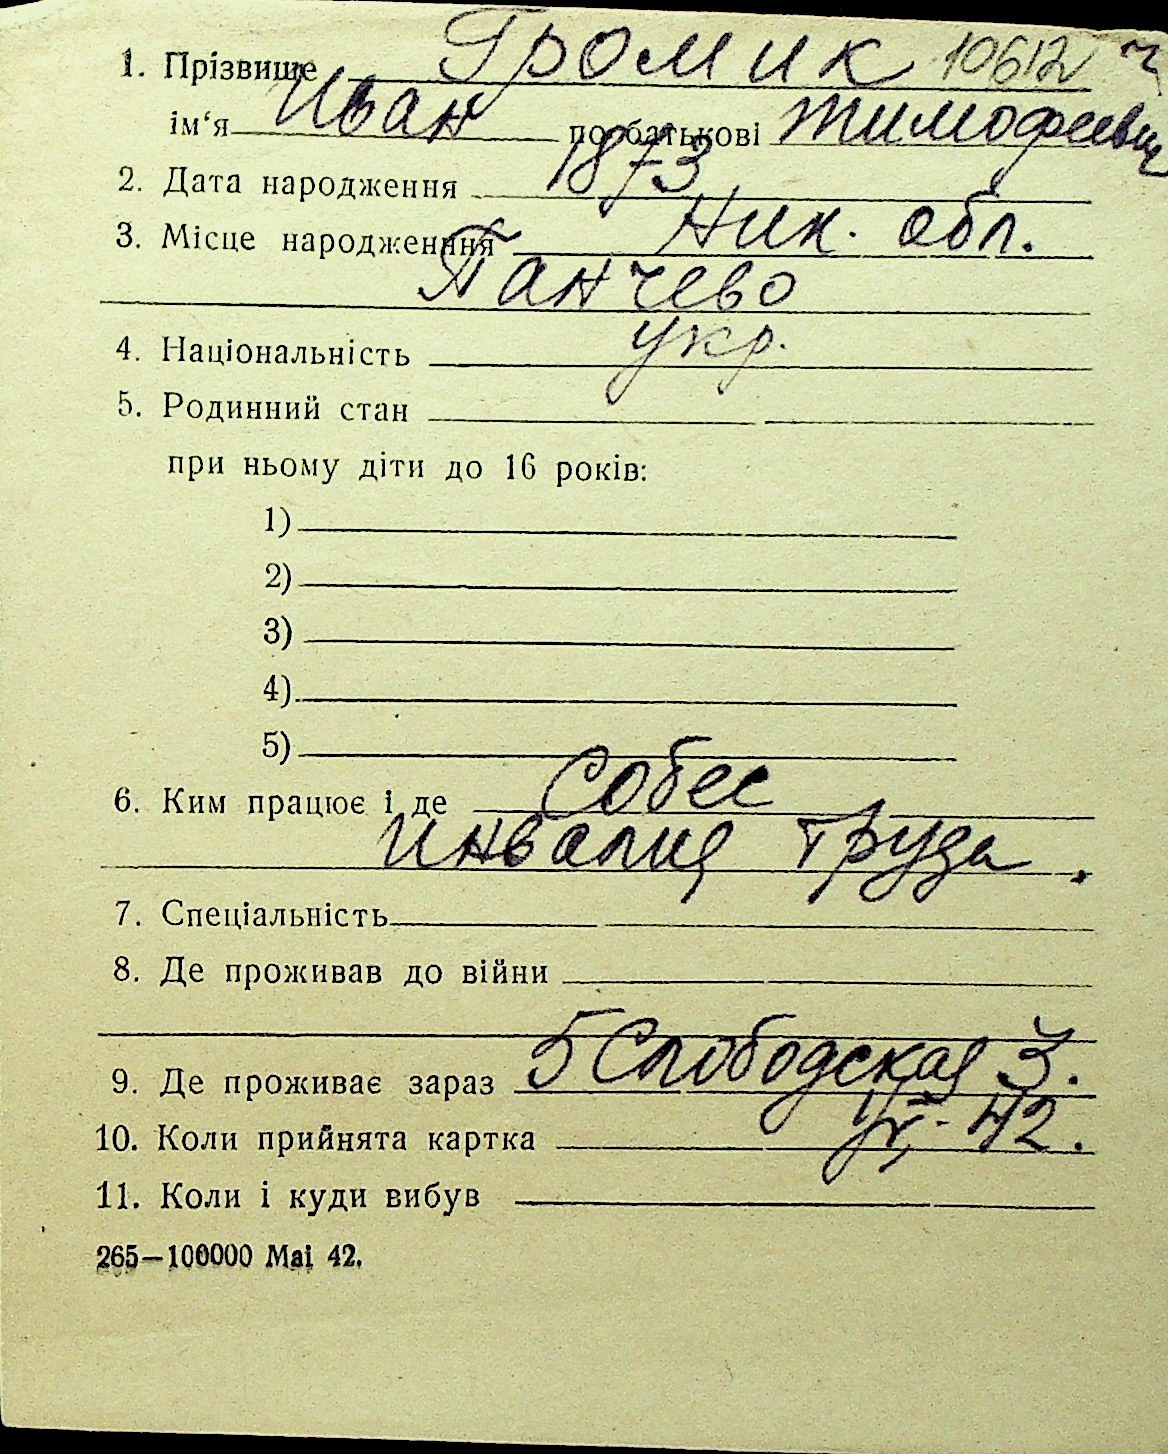 1. Прізвище Громик 10612 ч
ім‘я Иван по батькові Тимофеевич
2. Дата народження 1873
3. Місце народження Ник. обл.
Панчево
4. Національність укр.
5. Родинний стан
при ньому діти до 16 років:
1)
2)
3)
4)
5)
6. Ким працює і де Собес
инвалид труда.
7. Спеціальність
8. Де проживав до війни
9. Де проживає зараз 5 Слободская 3.
10. Коли прийнята картка 42.
11. Коли і куди вибув
265—100000 Mai 42.